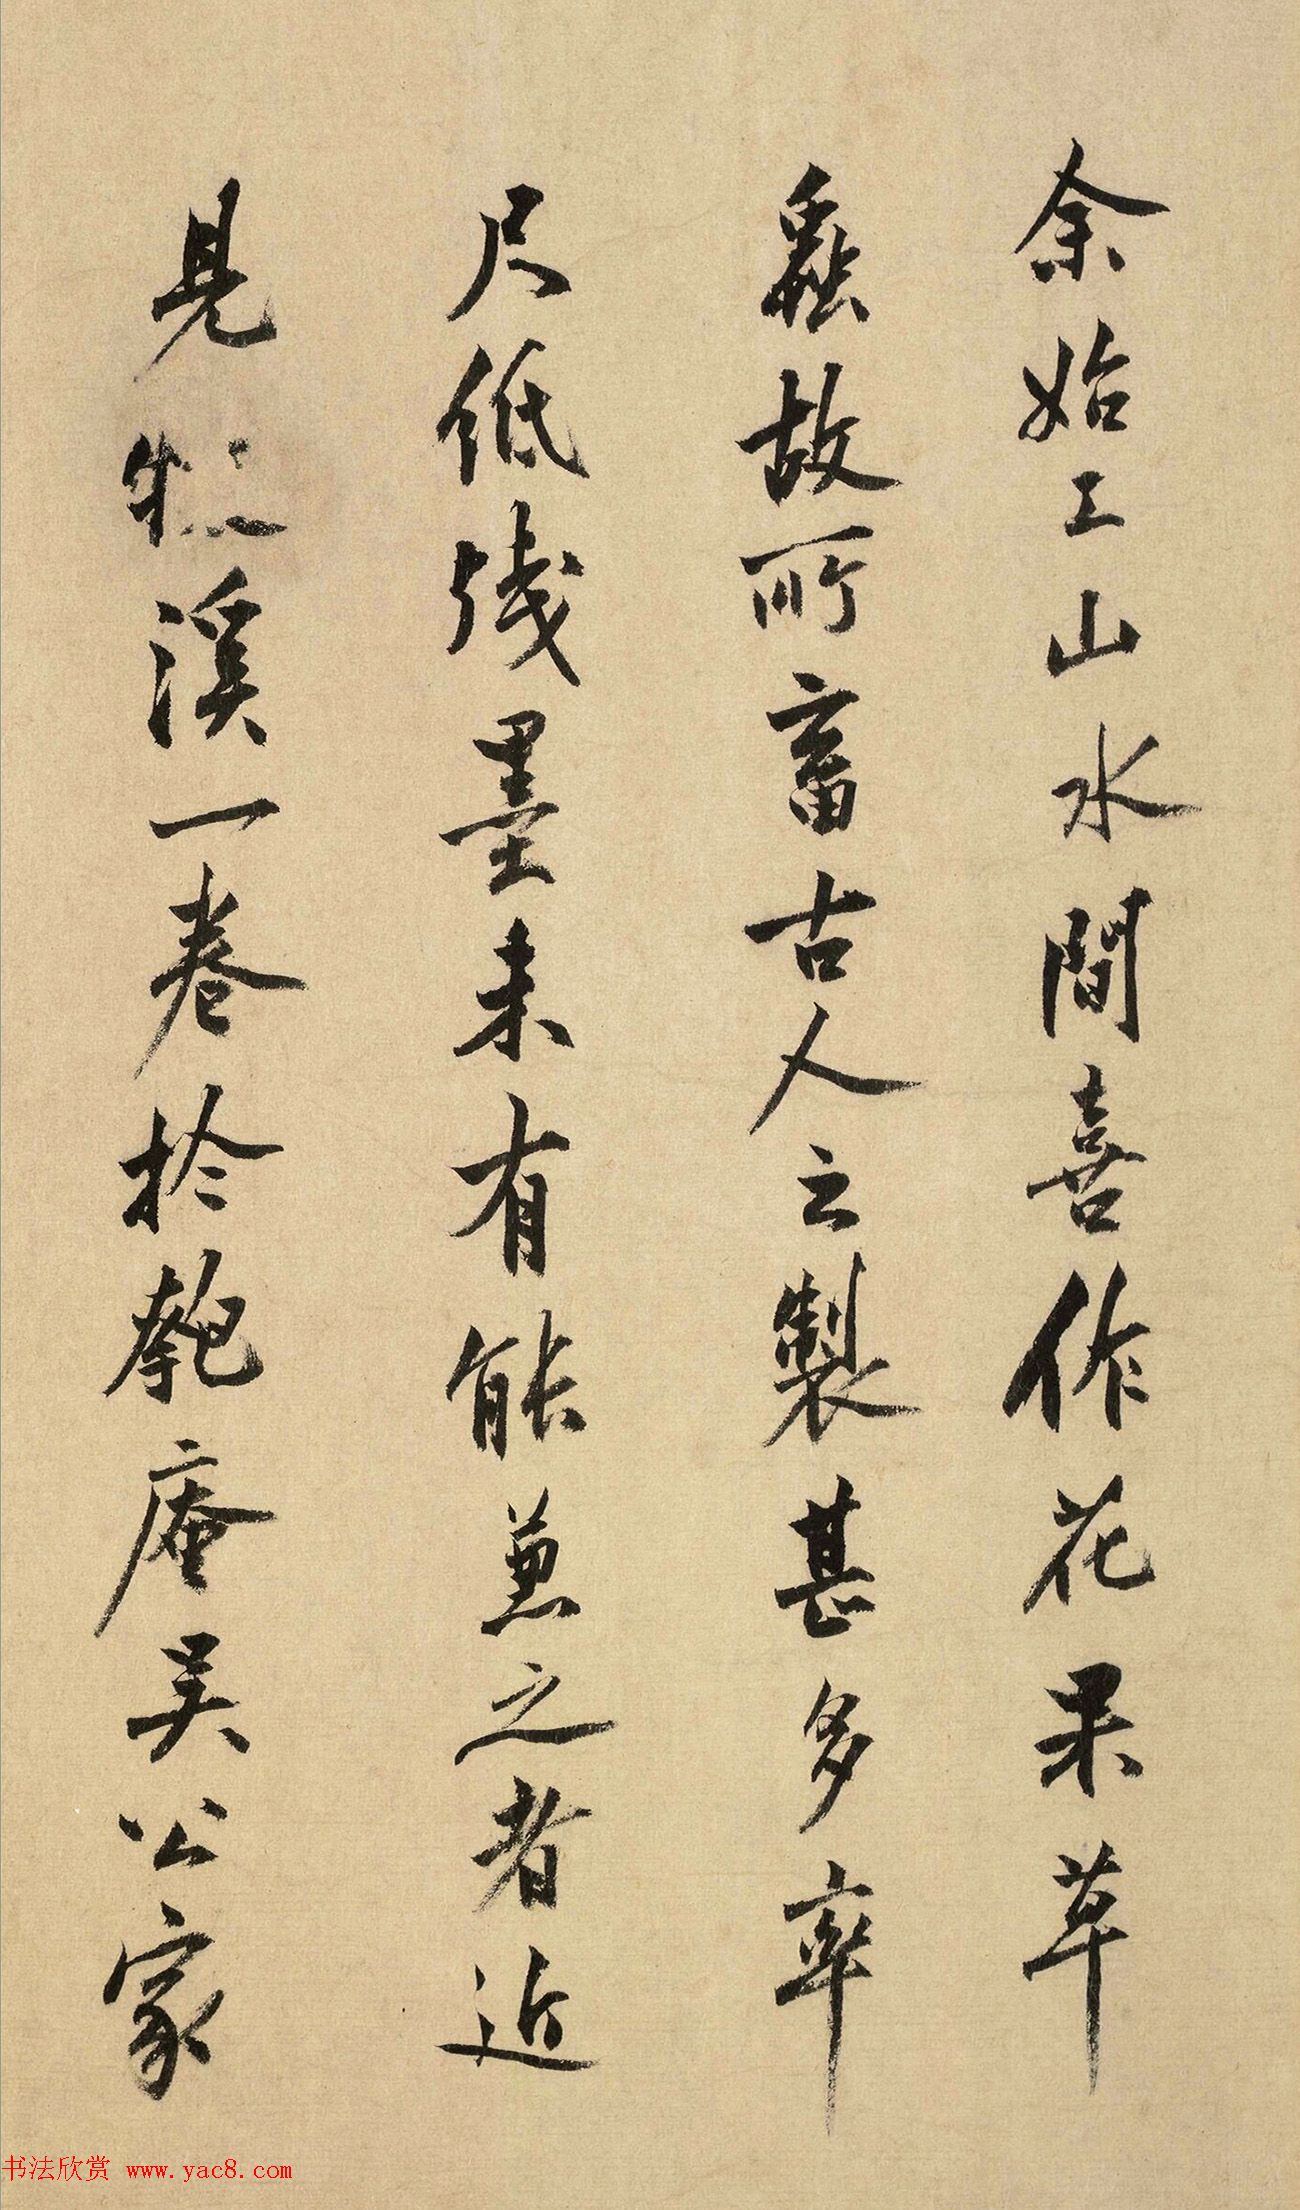 余始工山水間喜作花果草
蟲故所畜古人之製甚多率
尺紙残墨未有能兼之者近
見牧溪一卷於匏庵吴公家
书法欣赏 www.yac8.com